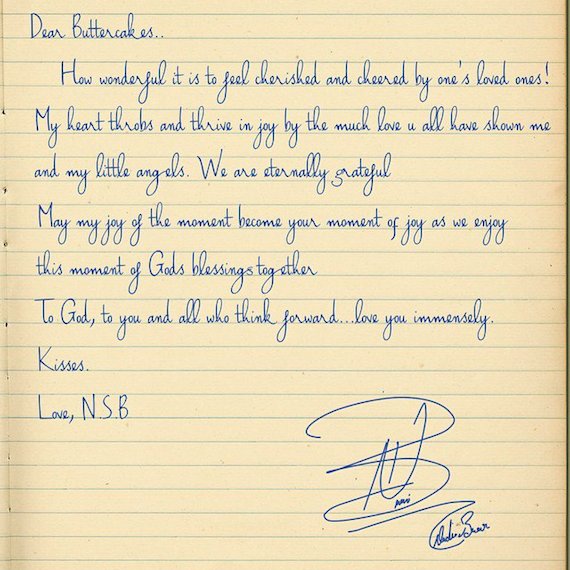 Dear Buttercakes..
How wonderful it is to feel cherished and cheered by one's loved ones!
My heart throbs and thrive in joy by the much love u all have shown me
and my little angels. We are eternally grateful
May my joy of the moment become your moment of joy as we enjoy
this moment of Gods blessings together
To God, to you and all who think forward...love you immensely.
Kisses.
Love, N.S.B